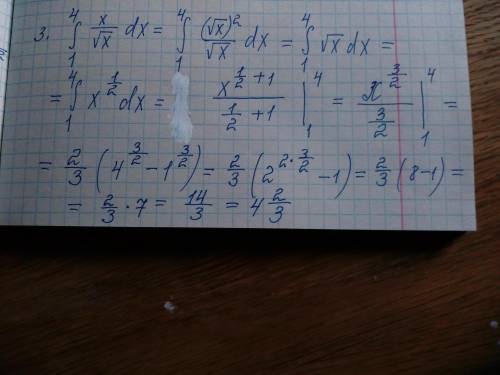 3. ∫₁⁴ x/√x dx = ∫₁⁴ (√x)²/√x dx = ∫₁⁴ √x dx =
= ∫₁⁴ x^(1/2) dx = x^(1/2 + 1)/(1/2 + 1) |₁⁴ = x^(3/2)/(3/2) |₁⁴ =
= 2/3 (4^(3/2) - 1^(3/2)) = 2/3 (2^(2·3/2) - 1) = 2/3 (8-1) =
= 2/3 · 7 = 14/3 = 4 2/3